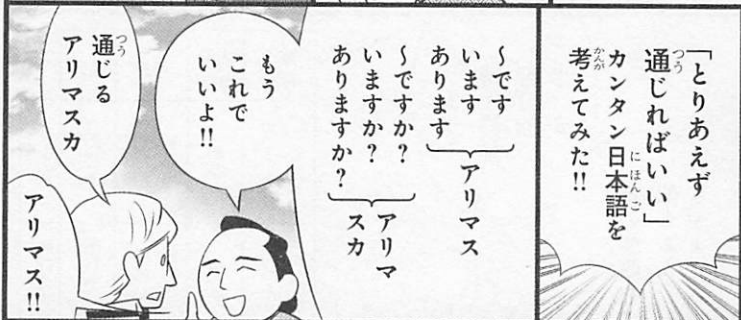 「とりあえず
通じればいい」
カンタン日本語を
考えてみた!!
～です
います
あります
アリマス
～ですか?
いますか?
ありますか?
アリマ
スカ
もう
これで
いいよ!!
通じる
アリマスカ
アリマス!!